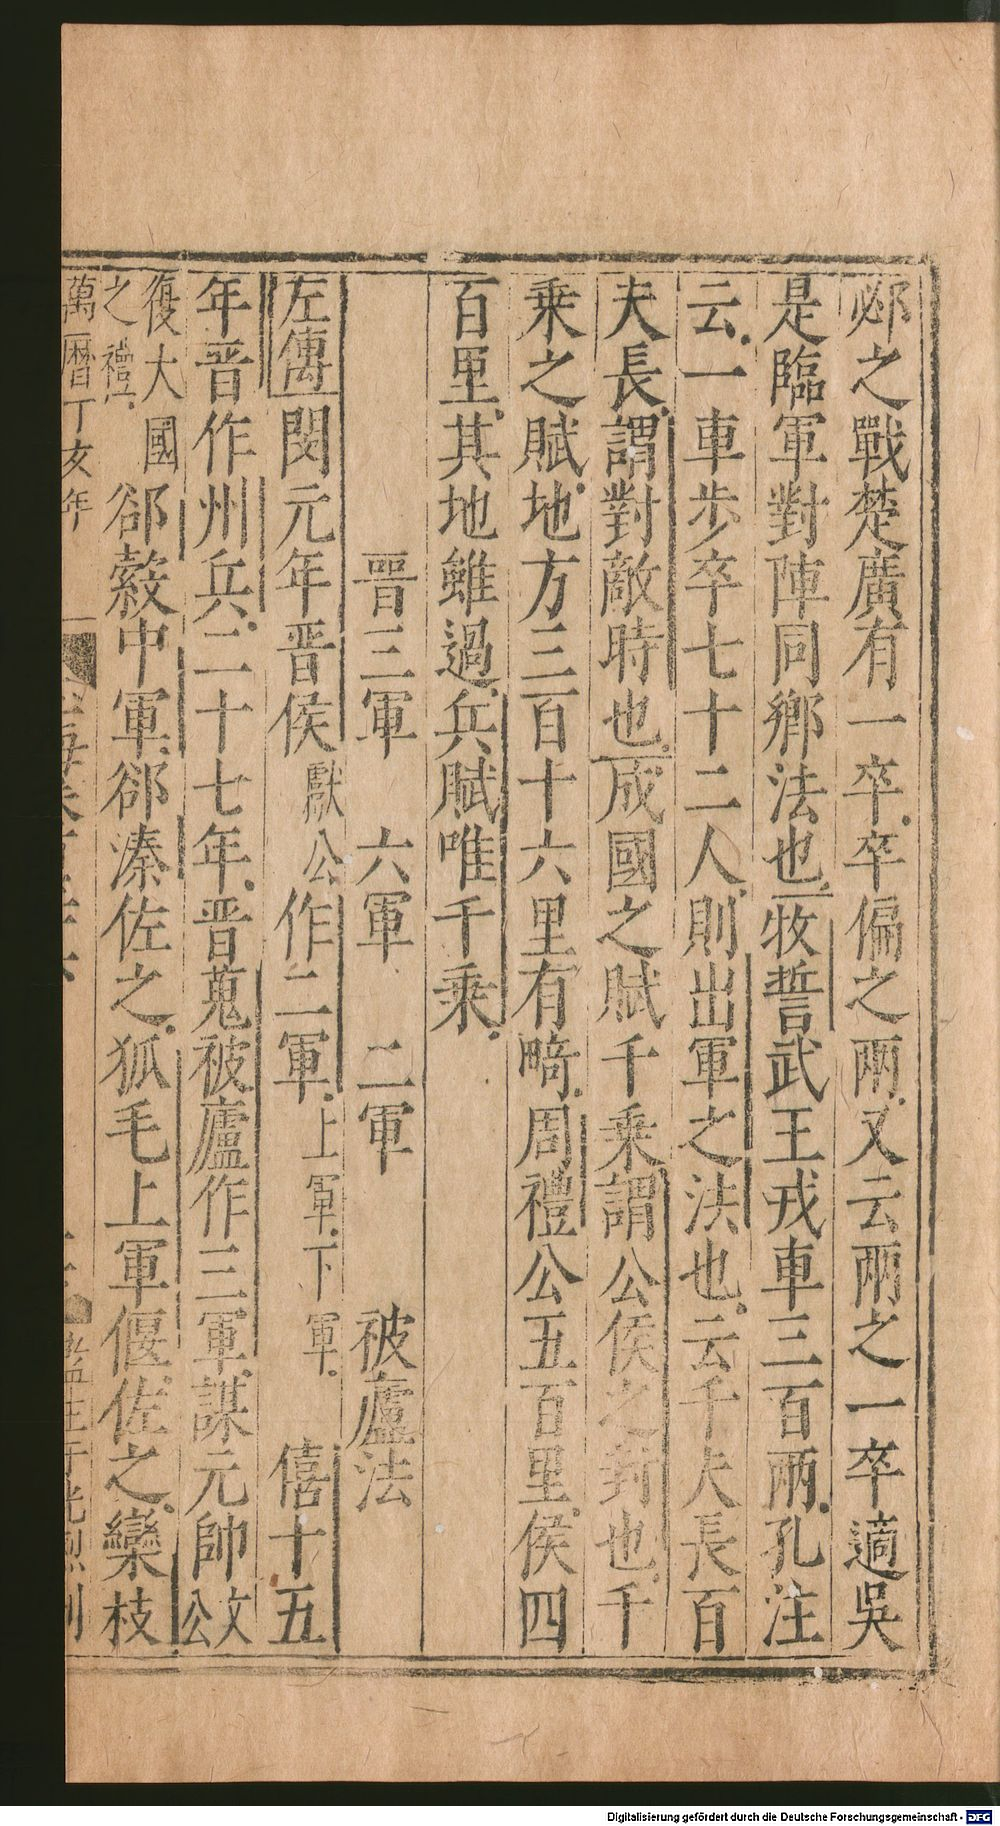 邲之戰楚廣有一卒卒偏之兩又云兩之一卒適吳
是臨軍對陣同鄉法也牧誓武王戎車三百兩孔注
云一車步卒七十二人則出軍之法也云千夫長百
夫長謂對敵時也成國之賦千乗謂公侯之封也千
乗之賦地方三百十六里有畸周禮公五百里侯四
百里其地雖過兵賦唯千乗
晋三軍 六軍 二軍 被廬法
左傳閔元年晋侯獻公作二軍上軍下軍 僖十五
年晋作州兵二十七年晋蒐被廬作三軍謀元帥文公
復大國之禮郤縠中軍郤溱佐之狐毛上軍偃佐之欒枝
萬曆丁亥年
Digitalisierung gefördert durch die Deutsche Forschungsgemeinschaft - DFG